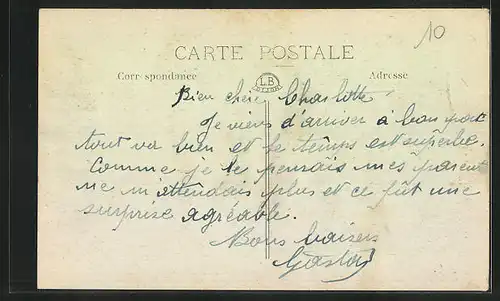 10
CARTE POSTALE
Corr spondance
LB
Adresse
Bien chère Charlotte
Je viens d'arriver à bon port
tout va bien et le temps est superbe.
Comme je le pensais mes parent
ne m'attendais plus et ce fût une
surprise agréable.
Bons baisers
Gaston